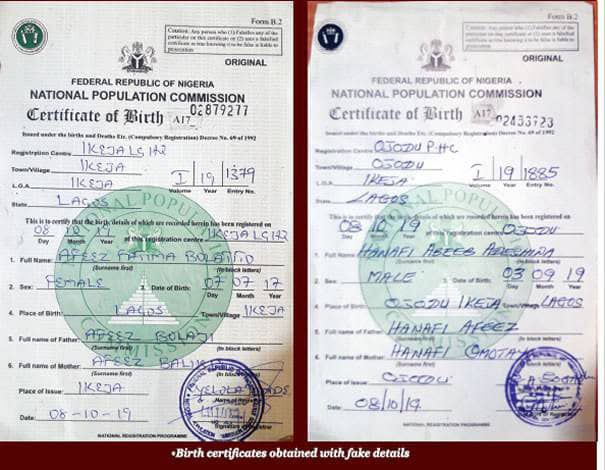 Form B.2
Caution: Any person who (1) Falsifies any of the
particular on this certificate or (2) uses a falsified
certificate as true knowing it to be false is liable to
prosecution
ORIGINAL
FEDERAL REPUBLIC OF NIGERIA
NATIONAL POPULATION COMMISSION
Certificate of Birth A17 02879277
Issued under the births and Deaths Etc. (Compulsory Registration) Decree No. 69 of 1992
Registration Centre IKEJA LG 1+2
Town/Village IKEJA
I 19 1379
L.G.A IKEJA
Volume Year Entry No.
State LAGOS
This is to certify that the birth, details of which are recorded herein has been registered on
08 10 19 at this registration centre IKEJA LG 1+2
Day Month Year
1. Full Name: AFEEZ FATIMA
(Surname first) (In block letters)
2. Sex: FEMALE 3. Date of Birth: 07 07 17
Day Month Year
4. Place of Birth: LAGOS Town/Village IKEJA
5. Full name of Father: AFEEZ BOLAJI
(Surname first) (In block letters)
6. Full name of Mother: AFEEZ
(Surname first) (In block letters)
Place of Issue: IKEJA
Date: 08-10-19
NATIONAL REGISTRATION PROGRAMME
Form B.2
Caution: Any person who (1) Falsifies any of the
particular on this certificate or (2) uses a falsified
certificate as true knowing it to be false is liable to
prosecution
ORIGINAL
FEDERAL REPUBLIC OF NIGERIA
NATIONAL POPULATION COMMISSION
Certificate of Birth A17 02453723
Issued under the births and Deaths Etc. (Compulsory Registration) Decree No. 69 of 1992
Registration Centre OJODU PHC
Town/Village OJODU
I 19 1885
L.G.A IKEJA
Volume Year Entry No.
State LAGOS
This is to certify that the birth, details of which are recorded herein has been registered on
08 10 19 at this registration centre OJODU
Day Month Year
1. Full Name: HANAFI
(Surname first) (In block letters)
2. Sex: MALE 3. Date of Birth: 03 09 19
Day Month Year
4. Place of Birth: OJODU IKEJA Town/Village LAGOS
5. Full name of Father: HANAFI AFEEZ
(Surname first) (In block letters)
6. Full name of Mother: HANAFI
(Surname first) (In block letters)
Place of Issue: OJODU
Date: 08/10/19
NATIONAL REGISTRATION PROGRAMME
•Birth certificates obtained with fake details